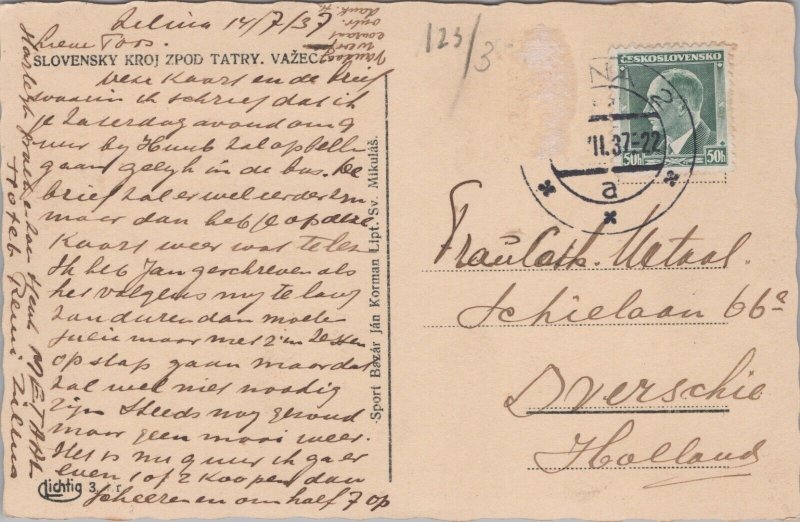 Zilina 14/7/37
Lieve Toos.
SLOVENSKY KROJ ZPOD TATRY. VAŽEC
Deze Kaart en de brief
waarin ik schreef dat ik
je Zaterdagavond om 9
uur bij Huub zal opbellen
gaan gelijk in de bus. De
brief zal er wel eerder zijn
maar dan heb je op deze
Kaart weer wat te lezen
Ik heb Jan geschreven als
het volgens mij te lang
zou duren dan moeten
jullie maar met z'n zessen
op stap gaan maar dat
zal wel niet noodig
zijn Steeds nog gezond
maar geen mooi weer.
Het is nu 9 uur ik ga er
even 1 of 2 koopen dan
scheeren en om half 7 op
Lichtig 3.
Hotel Remi Zilina
Vandaag
weer
courant
ontv.
dank
Sport Bazár Ján Korman Lipt. Sv. Mikuláš.
123/3
ČESKOSLOVENSKO
50h 50h
2
VII.37-22
a
Frau Cath. Metaal.
Schielaan 66a
Overschie
Holland